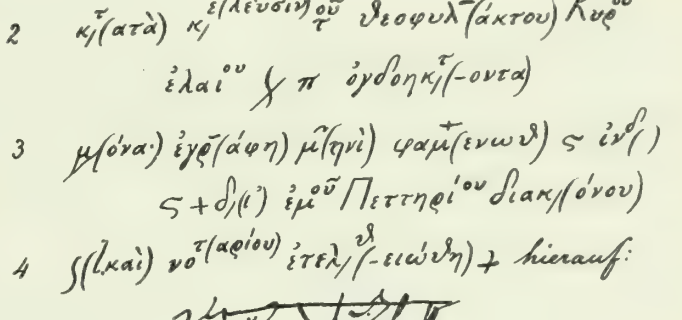 2 κ/τ(ατὰ) κ/ε(λευσιν) τοῦ θεοφυλ(άκτου) Κυροῦ
ἐλαίου π ὀγδοηκ/τ(-οντα)
3 μ(όνα·) ἐγρ(άφη) μ(ηνὶ) φαμ(ενωθ) ς ἰνδ/( )
ς + δ/(ι’) ἐμοῦ Πεττηρίου διακ/(όνου)
4 ʃ(l.καὶ) νοτ(αρίου) ἐτελ/θ(-ειώθη) + hierauf: